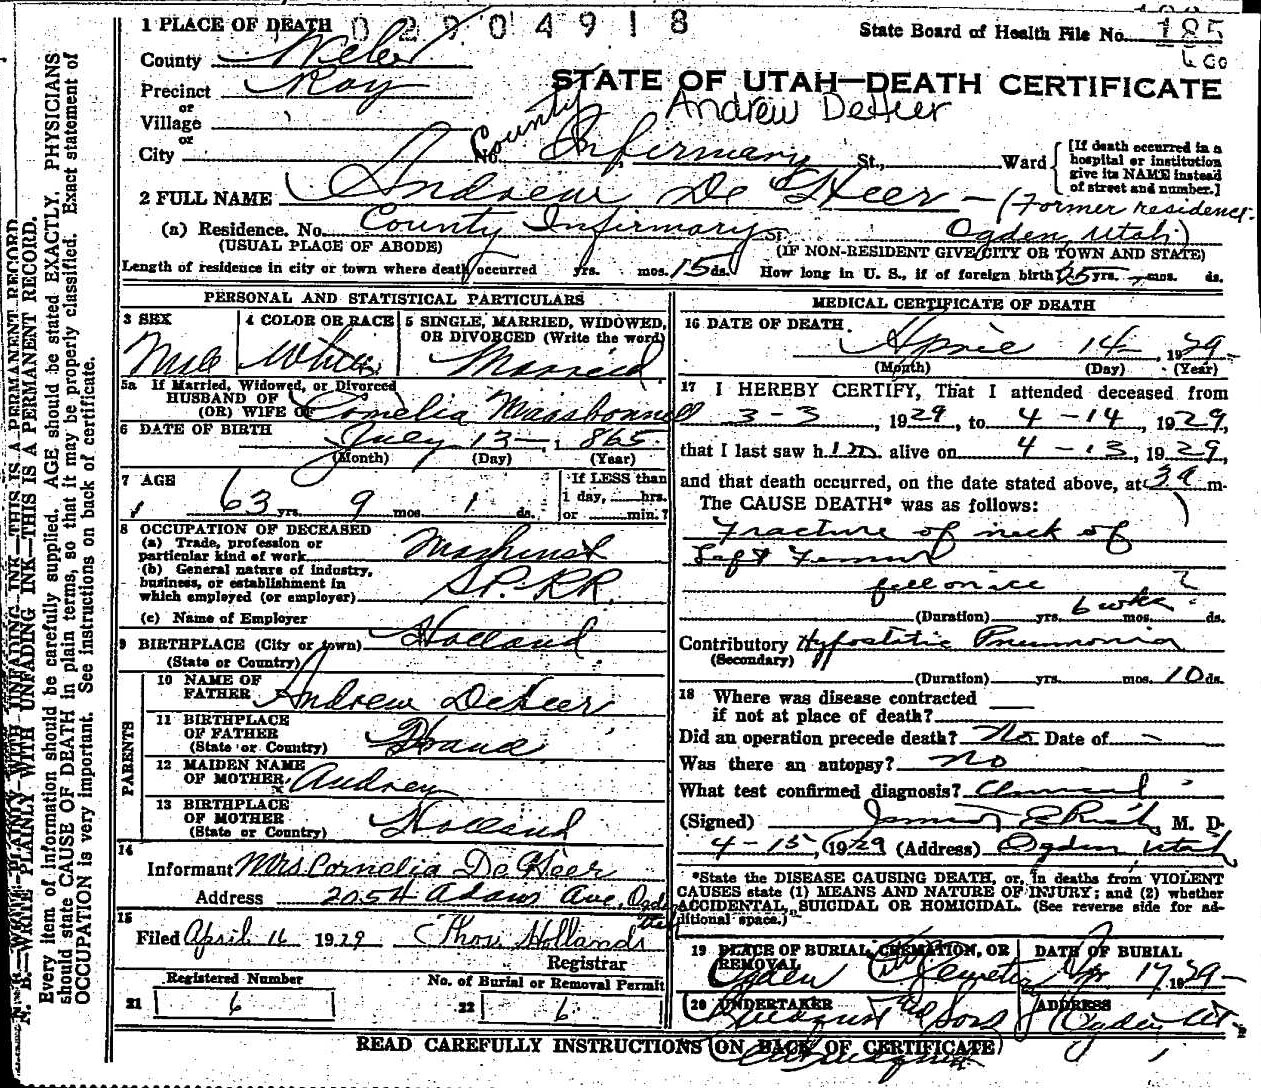 1 PLACE OF DEATH 02904918
State Board of Health File No. 185
County Weber
600
Precinct Roy
STATE OF UTAH—DEATH CERTIFICATE
or
Village
Andrew DeHeer
or
City No. County Infirmary St., Ward
[If death occurred in a hospital or institution give its NAME instead of street and number.]
2 FULL NAME Andrew De Heer — (Former residence
(a) Residence. No. County Infirmary St. Ogden, Utah)
(USUAL PLACE OF ABODE) (IF NON-RESIDENT GIVE CITY OR TOWN AND STATE)
Length of residence in city or town where death occurred yrs. mos. 15 ds. How long in U. S., if of foreign birth yrs. mos. ds.
PERSONAL AND STATISTICAL PARTICULARS
3 SEX Male
4 COLOR OR RACE White
5 SINGLE, MARRIED, WIDOWED, OR DIVORCED (Write the word) Married
5a If Married, Widowed, or Divorced
HUSBAND OF
(OR) WIFE OF Cornelia
6 DATE OF BIRTH July 13—, 1865.
(Month) (Day) (Year)
7 AGE 63 yrs. 9 mos. 1 ds.
If LESS than
1 day, hrs.
or min.?
8 OCCUPATION OF DECEASED
(a) Trade, profession or
particular kind of work Machinist
(b) General nature of industry,
business, or establishment in
which employed (or employer) S.P.-RR.
(c) Name of Employer
9 BIRTHPLACE (City or town) Holland
(State or Country)
PARENTS
10 NAME OF
FATHER Andrew DeHeer
11 BIRTHPLACE
OF FATHER
(State or Country)
12 MAIDEN NAME
OF MOTHER Audrey
13 BIRTHPLACE
OF MOTHER Holland
(State or Country)
14
Informant Mrs Cornelia De Heer
Address 2054 Adams Ave, Ogden
Utah
15
Filed April 16 1929 Thos Hollands
Registrar
Registered Number No. of Burial or Removal Permit
21 6 22 6
MEDICAL CERTIFICATE OF DEATH
16 DATE OF DEATH April 14—, 1929
(Month) (Day) (Year)
17 I HEREBY CERTIFY, That I attended deceased from
3-3, 1929, to 4-14, 1929,
that I last saw him alive on 4-13, 1929,
and that death occurred, on the date stated above, at 3 a m.
The CAUSE DEATH* was as follows:
Fracture of neck of
Left Femur
fell on ice ?
(Duration) yrs. 6 wks. mos. ds.
Contributory Hypostatic Pneumonia
(Secondary)
(Duration) yrs. mos. 10 ds.
18 Where was disease contracted
if not at place of death?
Did an operation precede death? No Date of —
Was there an autopsy? no
What test confirmed diagnosis? Clinical
(Signed) M. D.
4-15, 1929 (Address) Ogden, Utah
*State the DISEASE CAUSING DEATH, or, in deaths from VIOLENT
CAUSES state (1) MEANS AND NATURE OF INJURY; and (2) whether
ACCIDENTAL, SUICIDAL OR HOMICIDAL. (See reverse side for ad-
ditional space.)
19 PLACE OF BURIAL, CREMATION, OR REMOVAL Ogden City Cemetery
DATE OF BURIAL Apr 17, 1929—
20 UNDERTAKER & Sons
ADDRESS Ogden Ut
READ CAREFULLY INSTRUCTIONS ON BACK OF CERTIFICATE
N. B.—WRITE PLAINLY WITH UNFADING INK—THIS IS A PERMANENT RECORD.
Every item of information should be carefully supplied. AGE should be stated EXACTLY. PHYSICIANS
should state CAUSE OF DEATH in plain terms, so that it may be properly classified. Exact statement of
OCCUPATION is very important. See instructions on back of certificate.